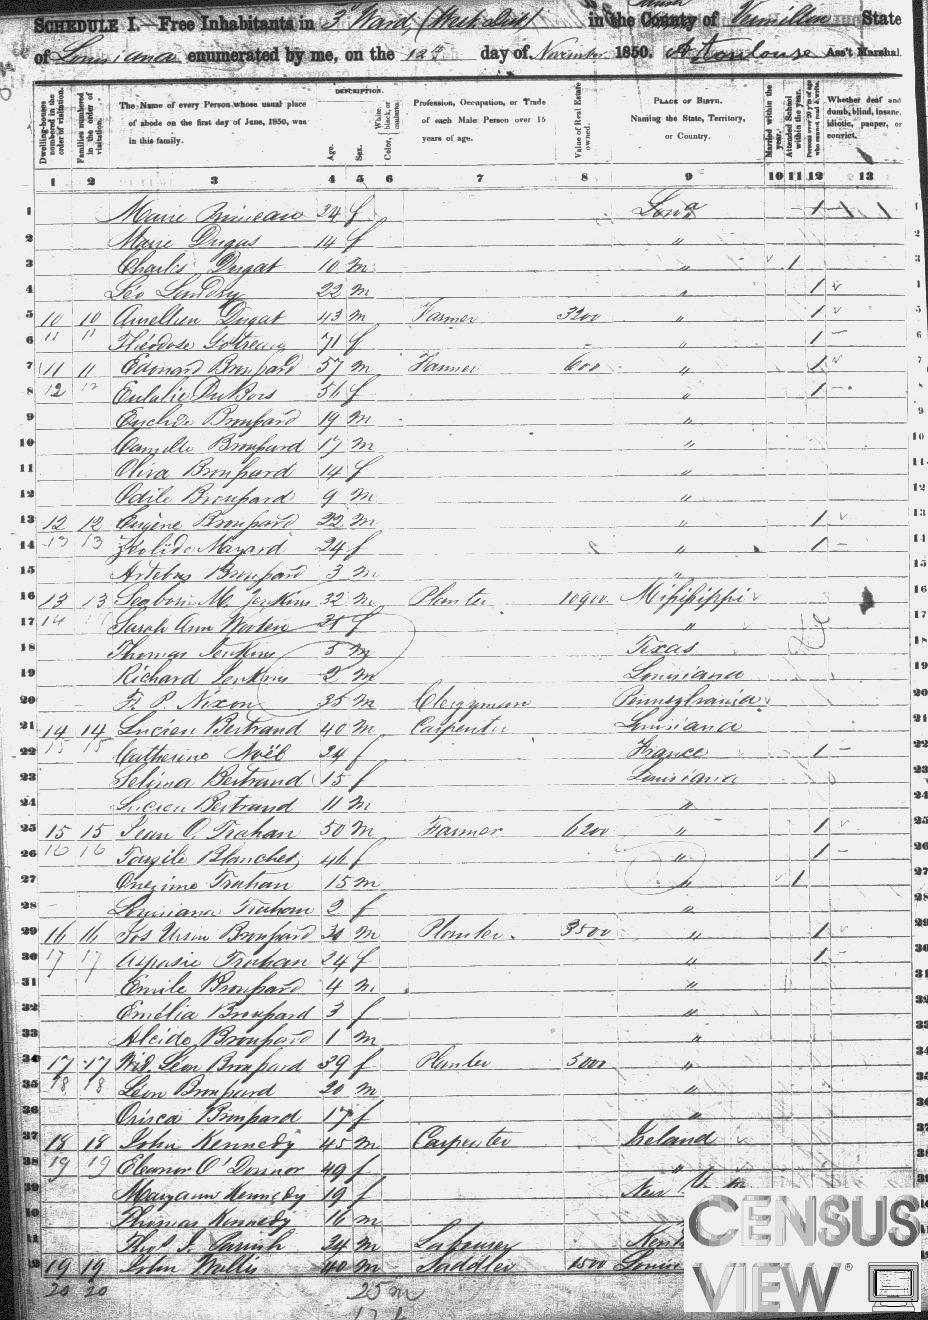 SCHEDULE I.—Free Inhabitants in 3d Ward, (West district) in the County of Vermillion State
of Louisiana enumerated by me, on the 12th day of November 1850. Ass't Marshal.
DESCRIPTION.
Dwelling-houses numbered in the order of visitation. Families numbered in the order of visitation. The Name of every Person whose usual place of abode on the first day of June, 1850, was in this family. Age. Sex. Color, White, black, or mulatto. Profession, Occupation, or Trade of each Male Person over 15 years of age. Value of Real Estate owned. PLACE OF BIRTH. Naming the State, Territory, or Country. Married within the year. Attended School within the year. Persons over 20 y'rs of age who cannot read & write. Whether deaf and dumb, blind, insane, idiotic, pauper, or convict.
1 2 3 4 5 6 7 8 9 10 11 12 13
1 Marie 34 f Lou'a 1
2 Marie Dugas 14 f "
3 Charles Dugat 10 m " 1
4 Léo Landry 22 m " 1
5 10 10 Aurelien Dugat 43 m Farmer 3200 " 1
6 11 11 Théodose Gotreau 71 f " 1
7 11 11 Edouard Broussard 57 m Farmer 600 " 1
8 12 12 Eulalie DuBois 51 f " 1
9 Euclide Broussard 19 m "
10 Camille Broussard 17 m "
11 Oliva Broussard 14 f "
12 Odile Broussard 9 m "
13 12 12 Eugène Broussard 22 m " 1
14 13 13 Zéolide Nayard 24 f " 1
15 Broussard 3 m "
16 13 13 Seaborn M. Jenkins 32 m Planter 10900 Mississippi
17 14 Sarah Ann Wooten 31 f "
18 Thomas Jenkins 5 m Texas
19 Richard Jenkins 2 m Louisiana
20 F. P. Nixon 35 m Clergyman Pennsylvania
21 14 14 Lucien Bertrand 40 m Carpenter Louisiana
22 15 15 Catherine Noël 34 f France 1
23 Selima Bertrand 15 f Louisiana
24 Lucien Bertrand 11 m "
25 15 15 Jean O. Trahan 50 m Farmer 6200 " 1
26 16 16 Tarzile Blanchet 46 f " 1
27 Onezime Trahan 15 m " 1
28 Louisiana Trahan 2 f "
29 16 16 Jos Ursin Broussard 31 m Planter 3500 " 1
30 17 17 Aspasie Trahan 24 f " 1
31 Emile Broussard 4 m "
32 Emélia Broussard 3 f "
33 Alcide Broussard 1 m "
34 17 17 Wid. Léon Broussard 39 f Planter 5000 "
35 18 18 Léon Broussard 20 m "
36 Orisca Broussard 17 f "
37 18 18 John Kennedy 45 m Carpenter Ireland
38 19 19 Eleanor O'Donnor 49 f "
39 Maryann Kennedy 19 f New
40 Thomas Kennedy 16 m
41 Thos J. Parrish 24 m Labourer
42 19 19 John Willis 40 m Saddler 1500 Louisi
20 20 25 m
17 f
CENSUS
VIEW®